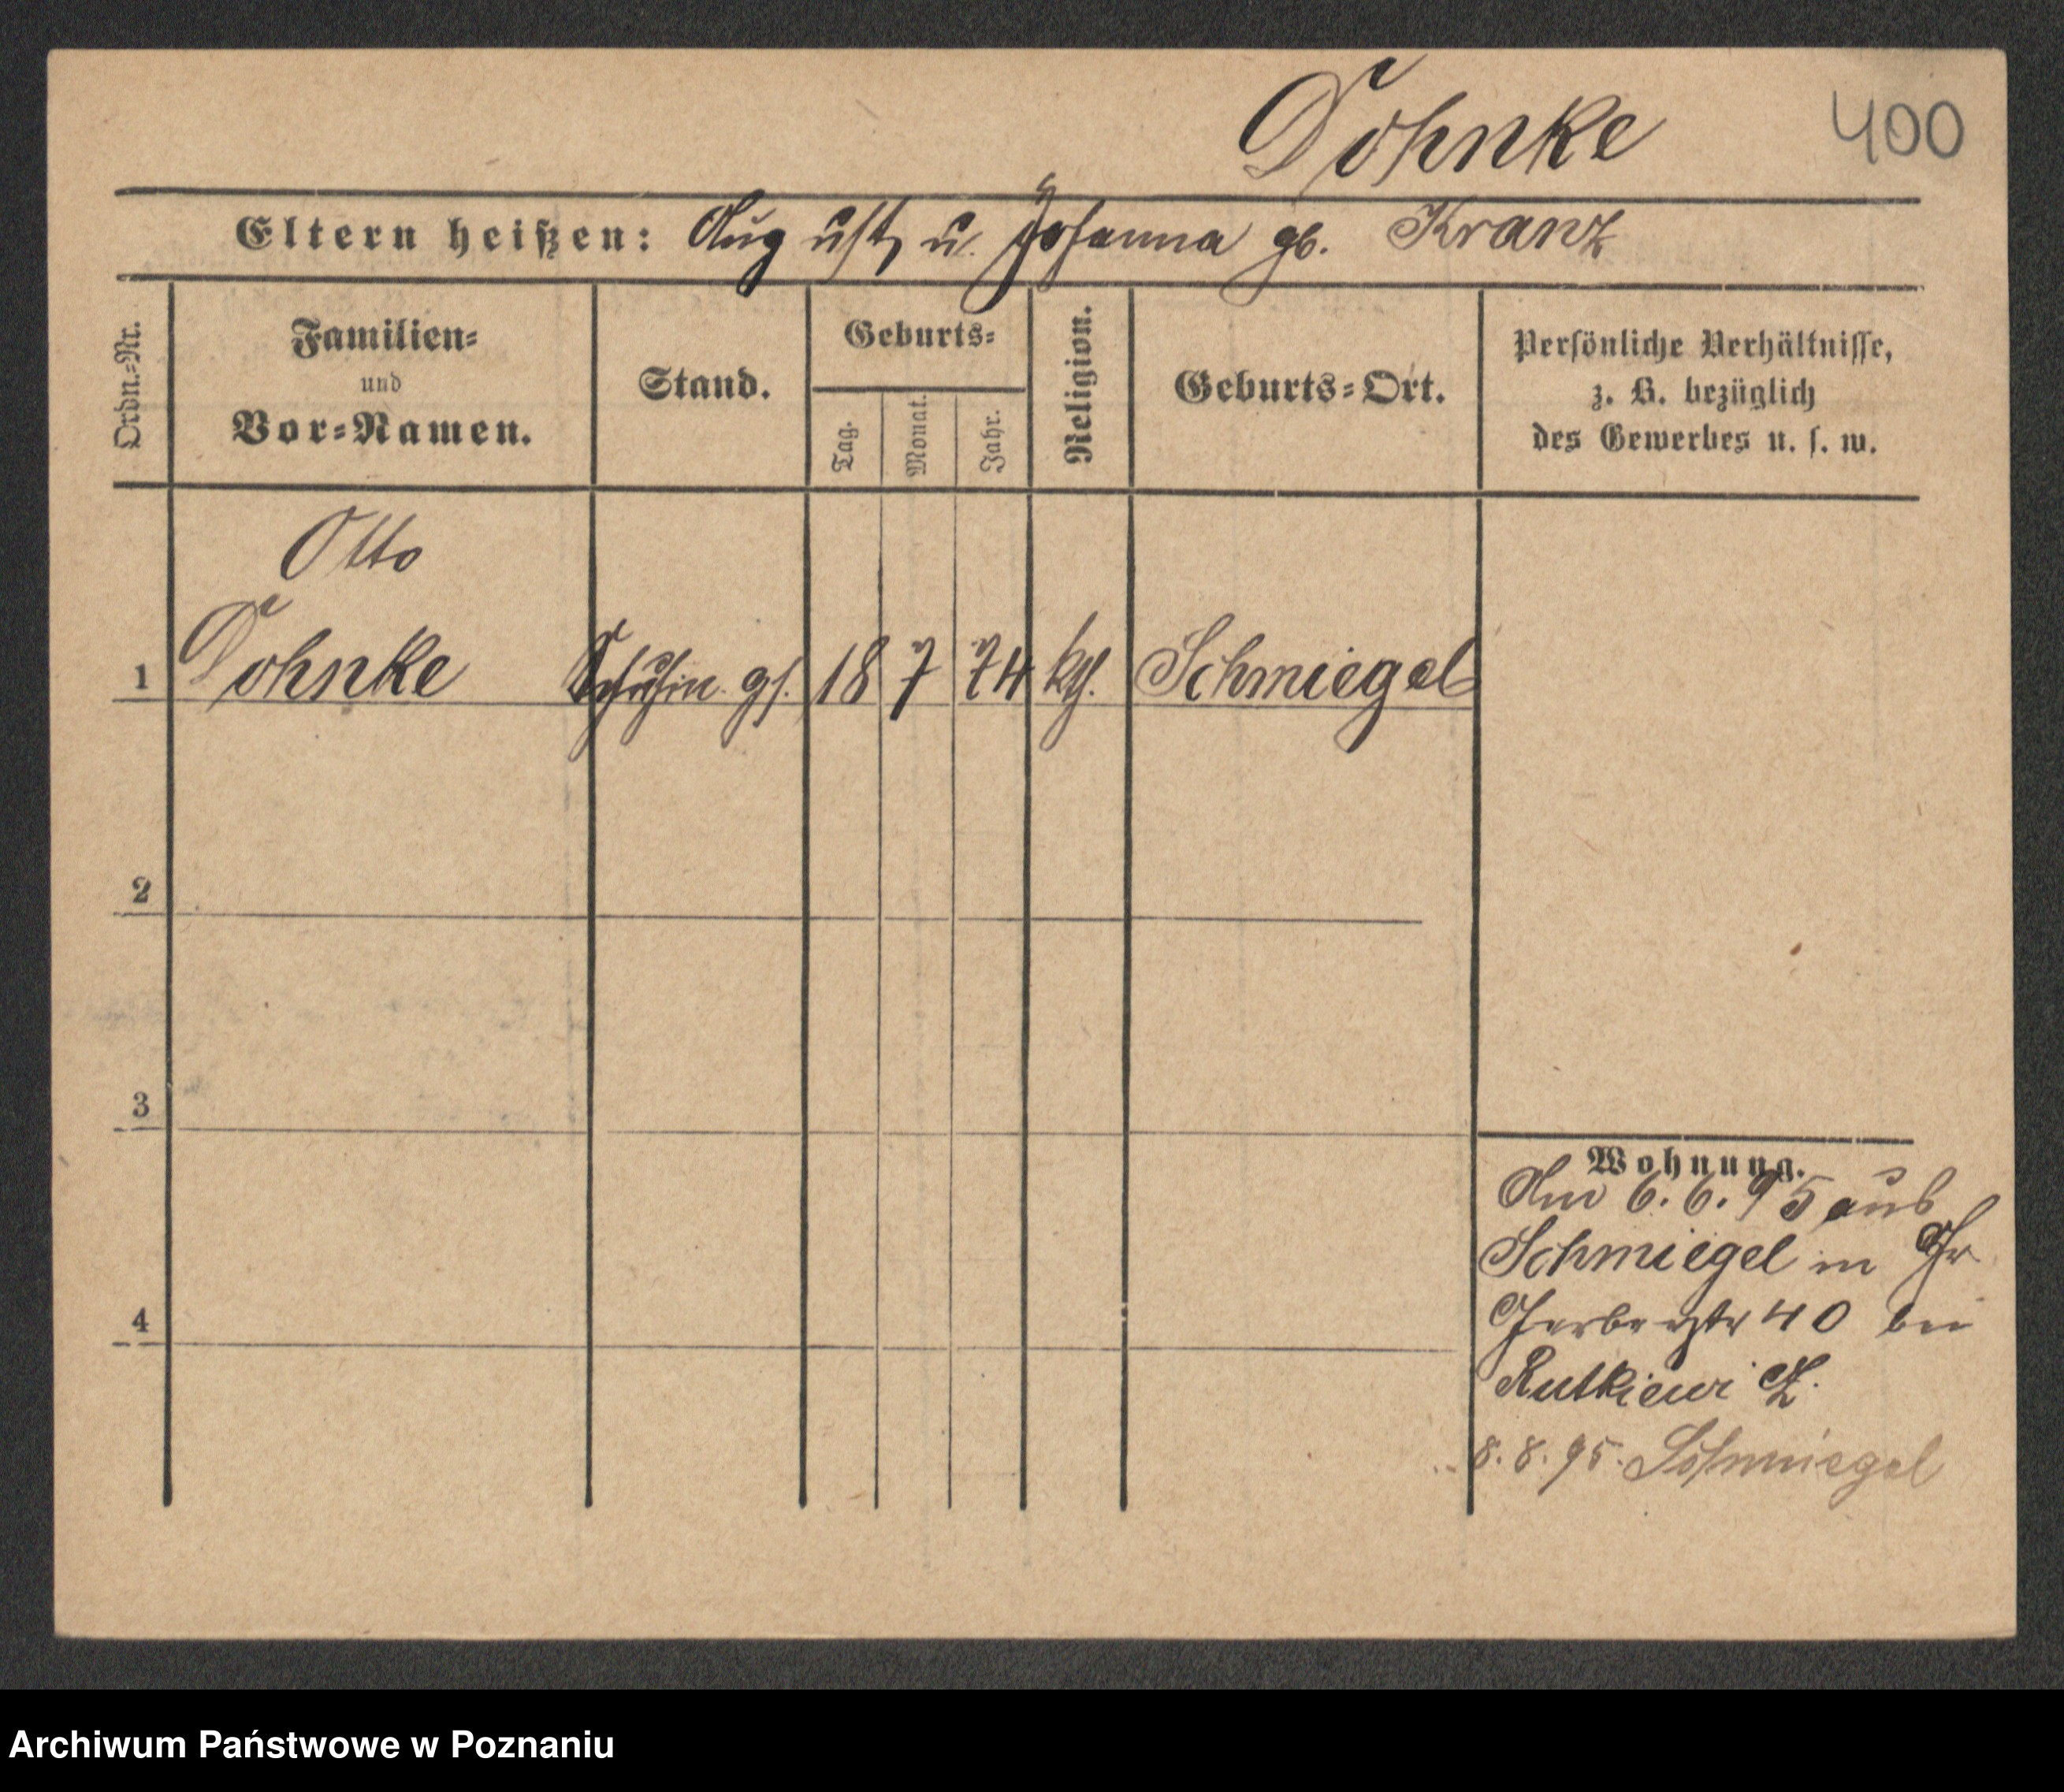 Dohnke 400
Eltern heißen: August u. Johanna gb. Kranz
Ordn.-Nr.
Familien-
und
Vor-Namen.
Stand.
Geburts-
Tag.
Monat.
Jahr.
Religion.
Geburts-Ort.
Persönliche Verhältnisse,
z. B. bezüglich
des Gewerbes u. s. w.
Otto
1 Dohnke Schuhm. gs. 18 7 74 kth. Schmiegel
2
3
4
Wohnung.
Am 6.6.95 aus
Schmiegel in Gr
Gerberstr 40 bei
Rutkiewicz.
8.8.95. Schmiegel
Archiwum Państwowe w Poznaniu